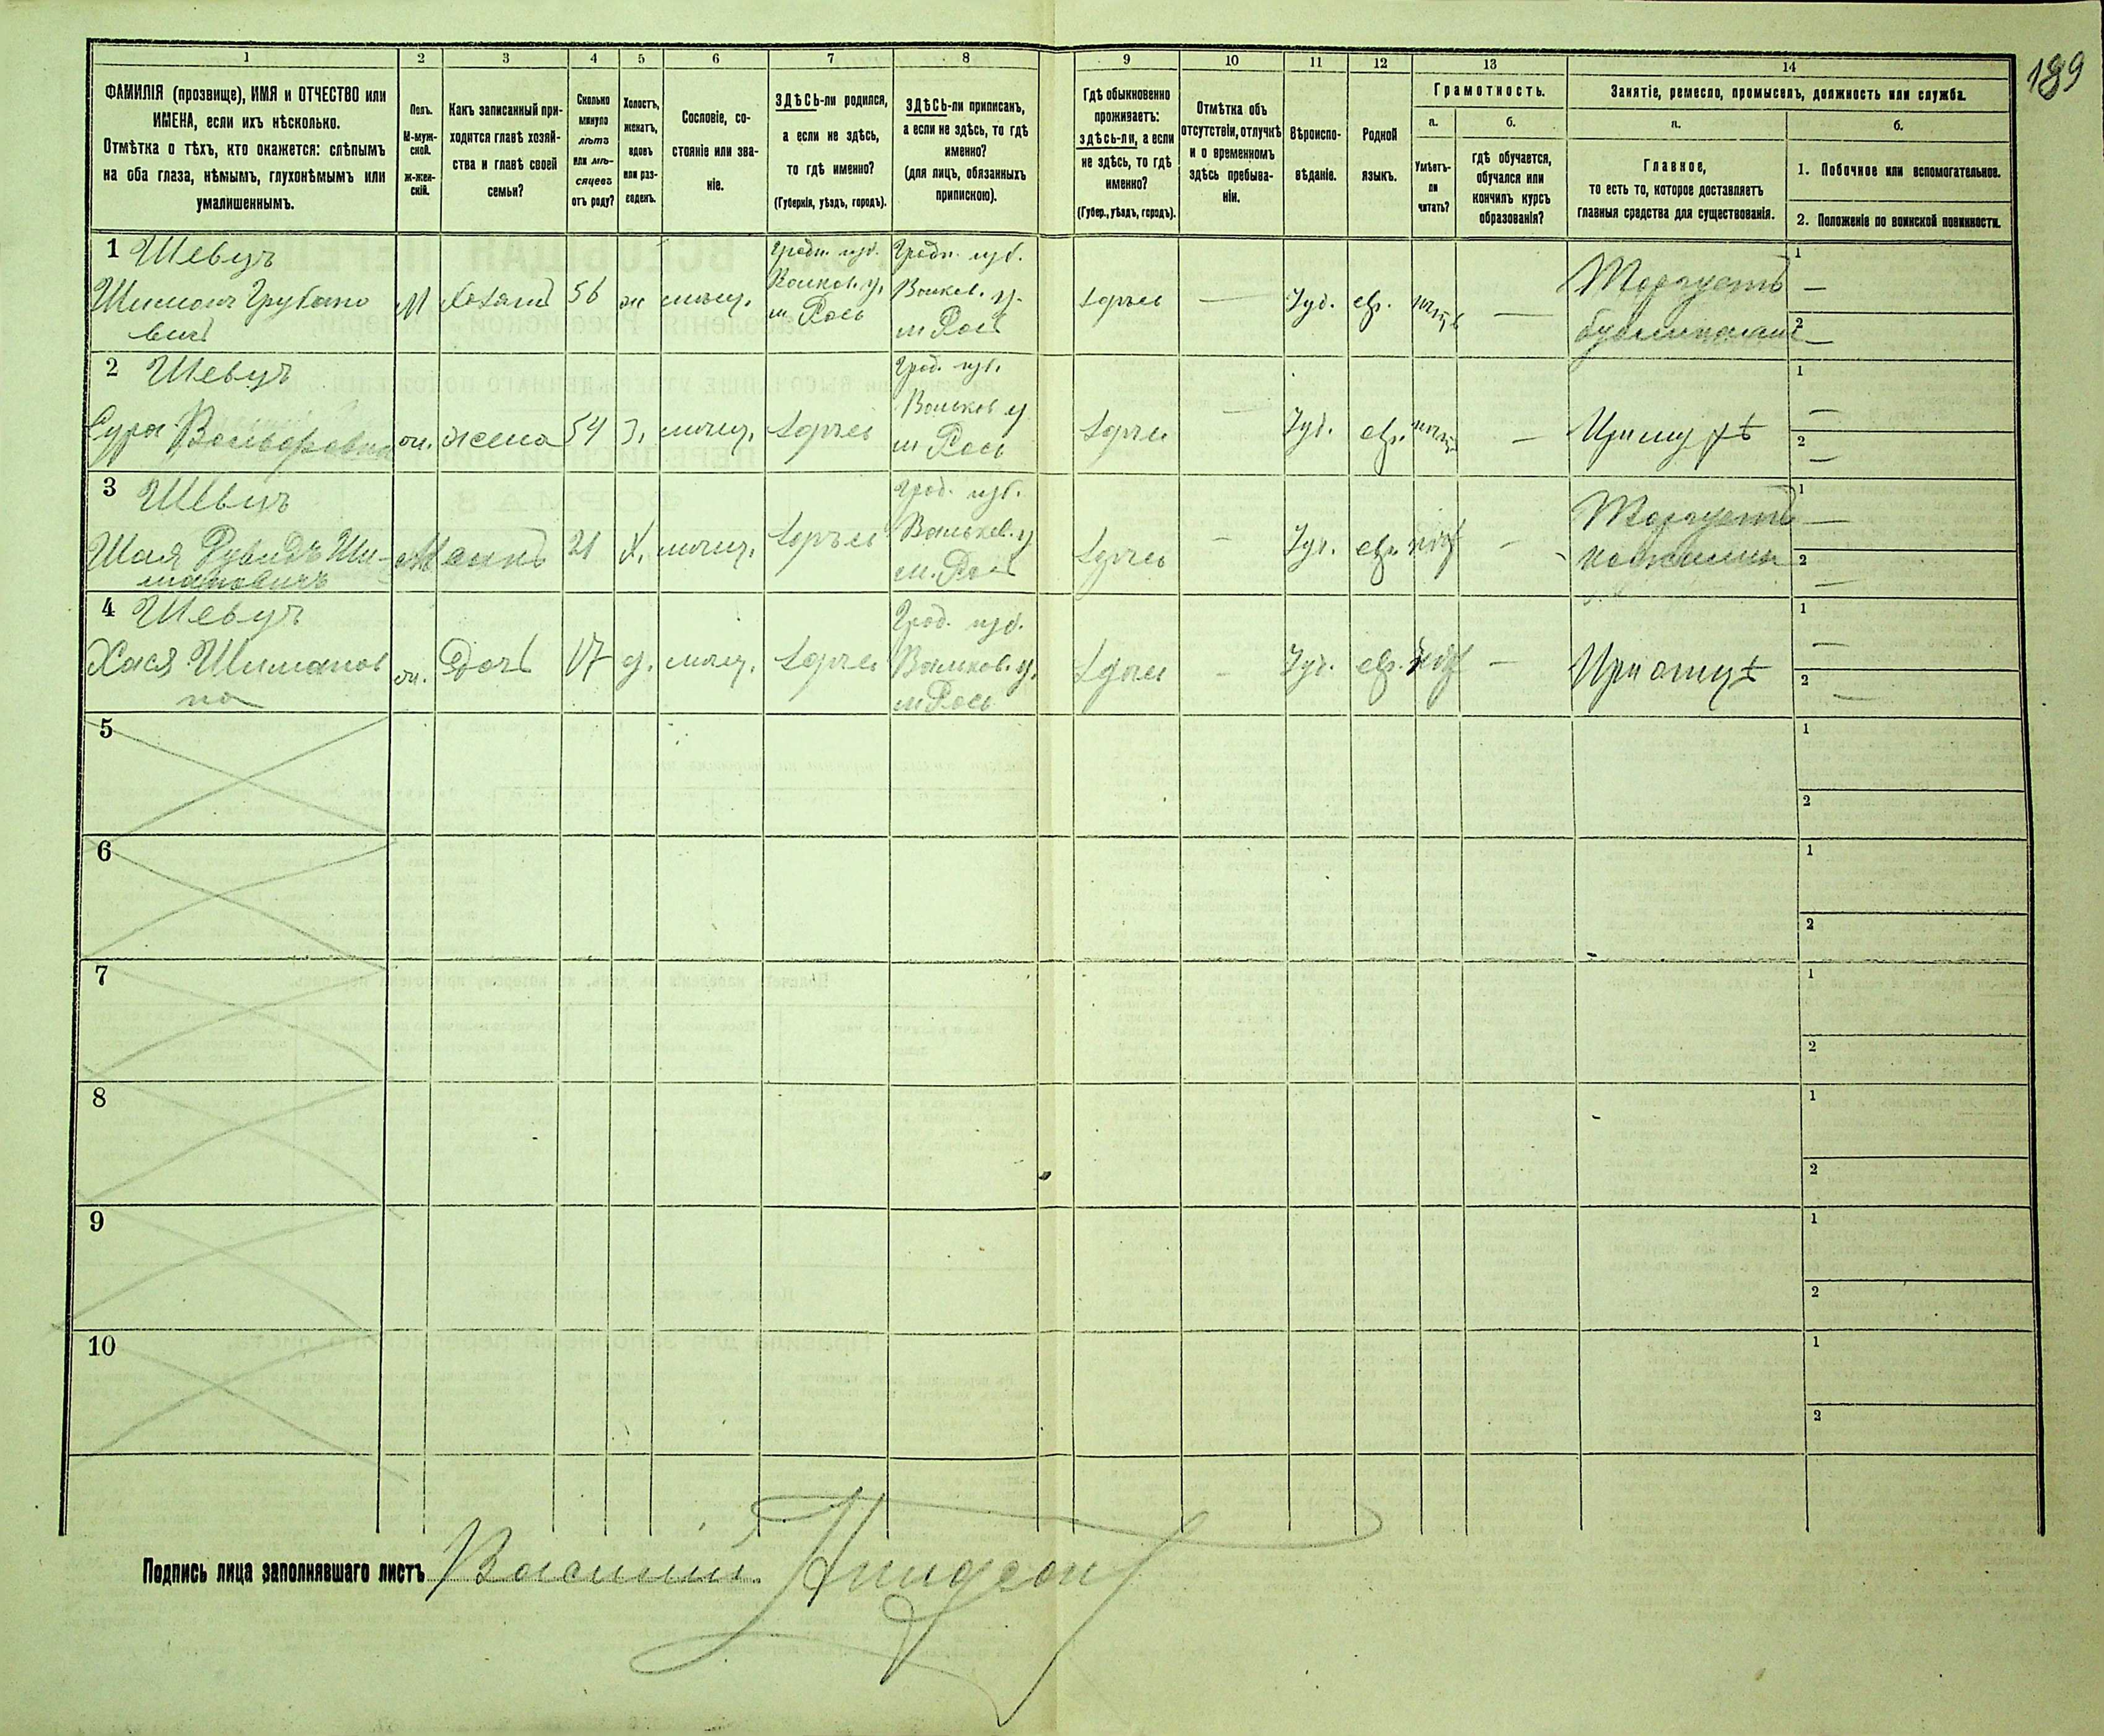 189
1
2
3
4
5
6
7
8
9
10
11
12
13
14
ФАМИЛІЯ (прозвище), ИМЯ и ОТЧЕСТВО или
ИМЕНА, если ихъ нѣсколько.
Отмѣтка о тѣхъ, кто окажется: слѣпымъ
на оба глаза, нѣмымъ, глухонѣмымъ или
умалишеннымъ.
Полъ.
М-муж-
ской.
Ж-жен-
скій.
Какъ записанный при-
ходится главѣ хозяй-
ства и главѣ своей
семьи?
Сколько
минуло
лѣтъ
или мѣ-
сяцевъ
отъ роду?
Холостъ,
женатъ,
вдовъ
или раз-
веденъ.
Сословіе, со-
стояніе или зва-
ніе.
ЗДѢСЬ-ли родился,
а если не здѣсь,
то гдѣ именно?
(Губернія, уѣздъ, городъ).
ЗДѢСЬ-ли приписанъ,
а если не здѣсь, то гдѣ
именно?
(для лицъ, обязанныхъ
припискою).
Гдѣ обыкновенно
проживаетъ:
здѣсь-ли, а если
не здѣсь, то гдѣ
именно?
(Губер., уѣздъ, городъ).
Отмѣтка объ
отсутствіи, отлучкѣ
и о временномъ
здѣсь пребыва-
ніи.
Вѣроиспо-
вѣданіе.
Родной
языкъ.
Грамотность.
а.
Умѣетъ-
ли
читать?
б.
гдѣ обучается,
обучался или
кончилъ курсъ
образованія?
Занятіе, ремесло, промыселъ, должность или служба.
а.
Главное,
то есть то, которое доставляетъ
главныя средства для существованія.
б.
1. Побочное или вспомогательное.
2. Положеніе по воинской повинности.
1 Шевцъ
Шиман
М
56
ж
мѣщ.
Гродн. губ.
Волков. у.
м Рось
Гродн. губ.
Волков. у.
м Рось
здѣсь
—
Іуд.
евр.
—
Торгуетъ
1
—
2
—
2 Шевцъ
Сура Вольфовна
ж.
жена
54
З.
мѣщ.
здѣсь
Грод. губ.
Волков у
м Рось
здѣсь
—
Іуд.
евр.
—
При мужѣ
1
—
2
—
3 Шевцъ
Шая Рувидъ Ши-
мановичъ
М
сынъ
21
Х.
мѣщ.
здѣсь
Грод. губ.
Волков. у
м. Рось
здѣсь
—
Іуд.
евр.
—
Торгуетъ
1
—
2
—
4 Шевцъ
Хася Шиманов
на
ж.
Дочь
17
д.
мѣщ.
здѣсь
Грод. губ.
Волков. у.
м Рось
здѣсь
—
Іуд.
евр.
—
При отцѣ
1
—
2
—
5
1
2
6
1
2
7
1
2
8
1
2
9
1
2
10
1
2
Подпись лица заполнявшаго листъ Василій